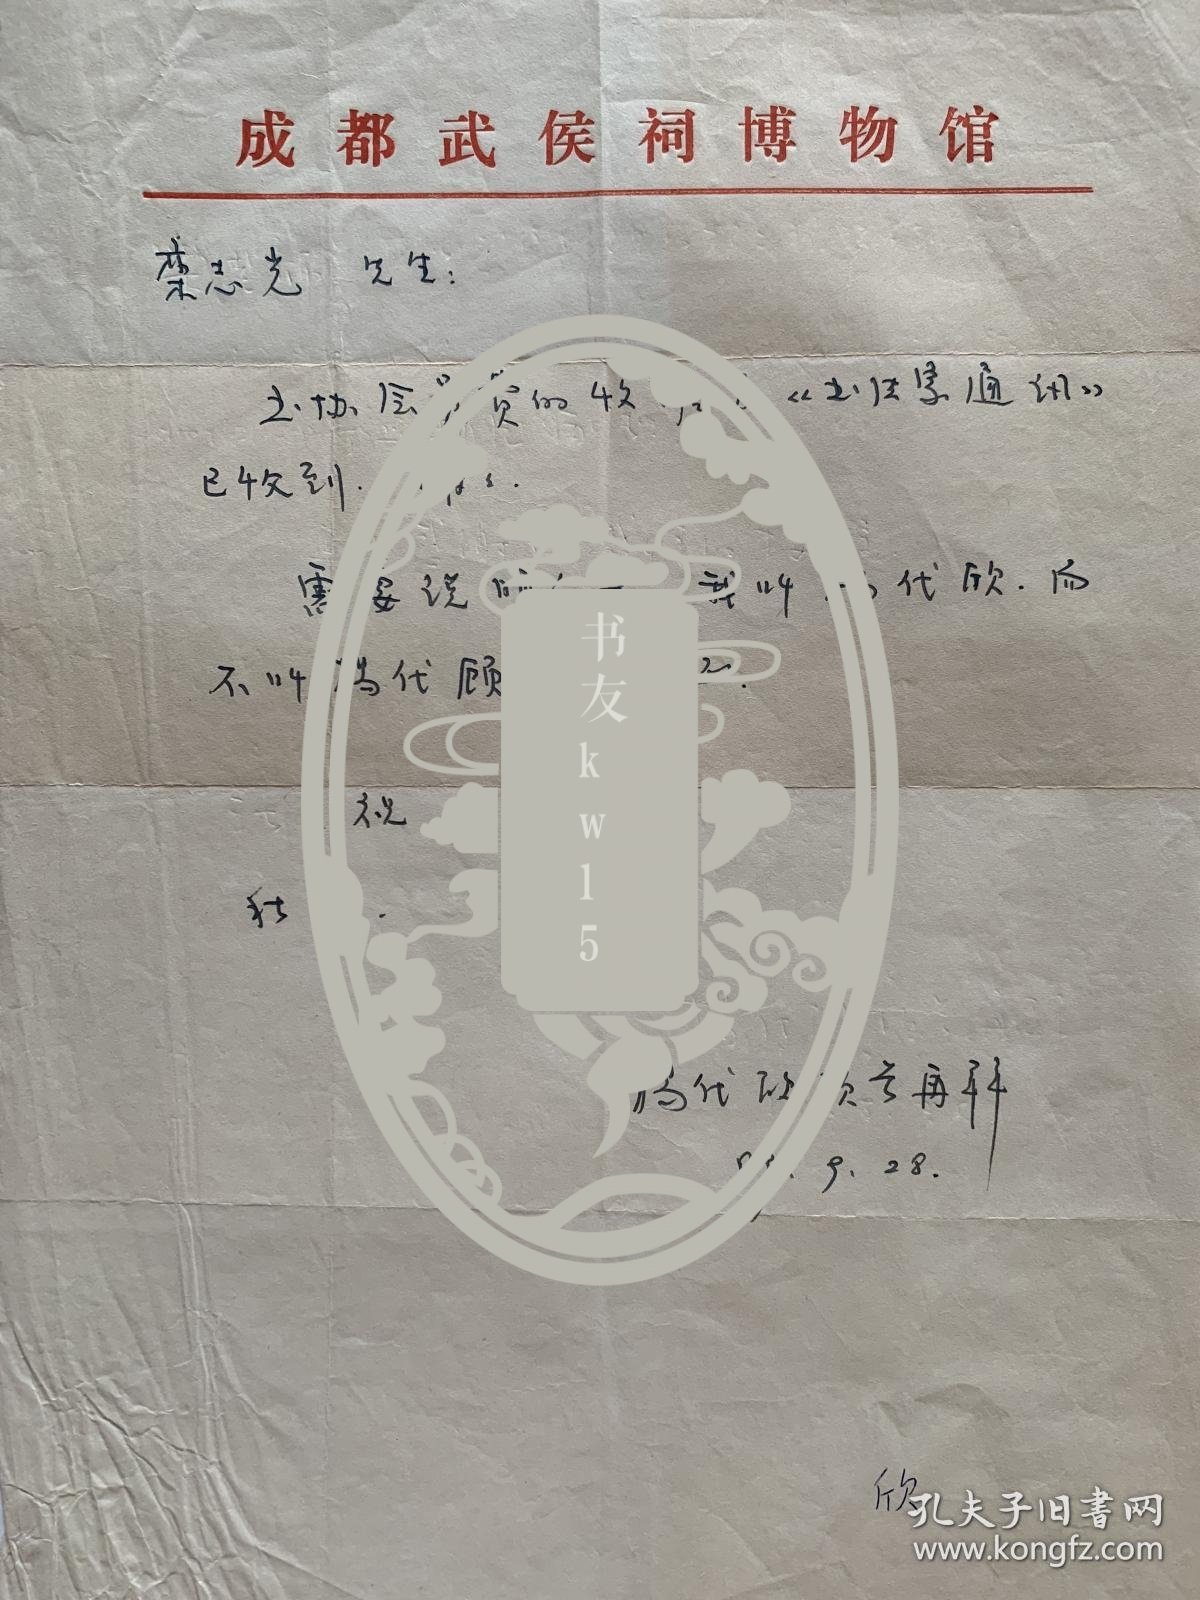 成都武侯祠博物馆
栾志光 先生：
书协会员费的收《书法家通讯》
已收到.
需要说明 我叫 代欣.而
不叫冯代顾
祝
秋
冯代欣顿首再拜
9.28.
欣
书友kwl5
孔夫子旧书网
www.kongfz.com